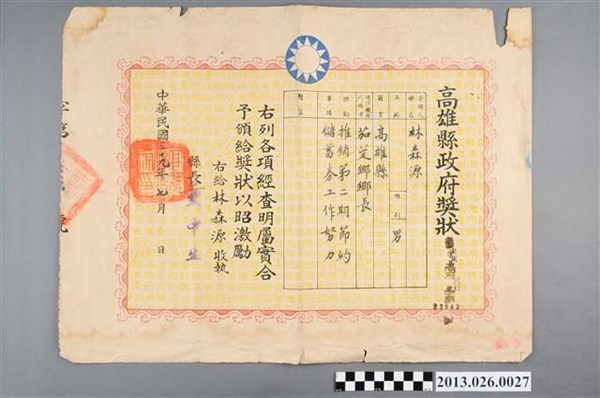 高雄縣政府獎狀
林森源
年齡
性別
男
籍貫
高雄縣
茄萣鄉鄉長
推銷第二期節約
儲蓄券工作努力
附註
右列各項經查明屬實合
予頒給獎狀以昭激勵
右給林森源收執
縣長
中華民國三十九年七月 日
字第
號
2013.026.0027